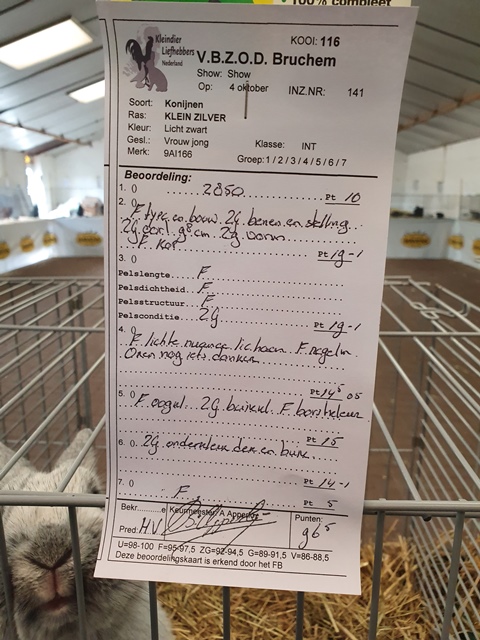 100% compleet
Kleindier
Liefhebbers
Nederland
KOOI: 116
V.B.Z.O.D. Bruchem
Show: Show
Op: 4 oktober INZ.NR: 141
Soort: Konijnen
Ras: KLEIN ZILVER
Kleur: Licht zwart
Gesl.: Vrouw jong Klasse: INT
Merk: 9AI166 Groep:1 / 2 / 3 / 4 / 5 / 6 / 7
Beoordeling:
1. 0 2850 Pt 10
2. 0 F type en bouw. ZG benen en stelling
ZG oorl. 9⁸ cm. ZG vorm
F. Kop Pt 19-1
3. 0
Pelslengte F
Pelsdichtheid F
Pelsstructuur F
Pelsconditie ZG Pt 19-1
4. 0 F. lichte nuance lichaam F. regelm
Oren nog iets donker
Pt 14⁵ 05
5. 0 F. oogkl. ZG buikkl. F. borstkleur
Pt 15
6. 0 ZG onderkleur dek en buik
Pt 14-1
7. 0 F Pt 5
Bekr.........e Keurmeester A Appel
Pred: HV Punten:
96⁵
U=98-100 F=95-97,5 ZG=92-94,5 G=89-91,5 V=86-88,5
Deze beoordelingskaart is erkend door het FB